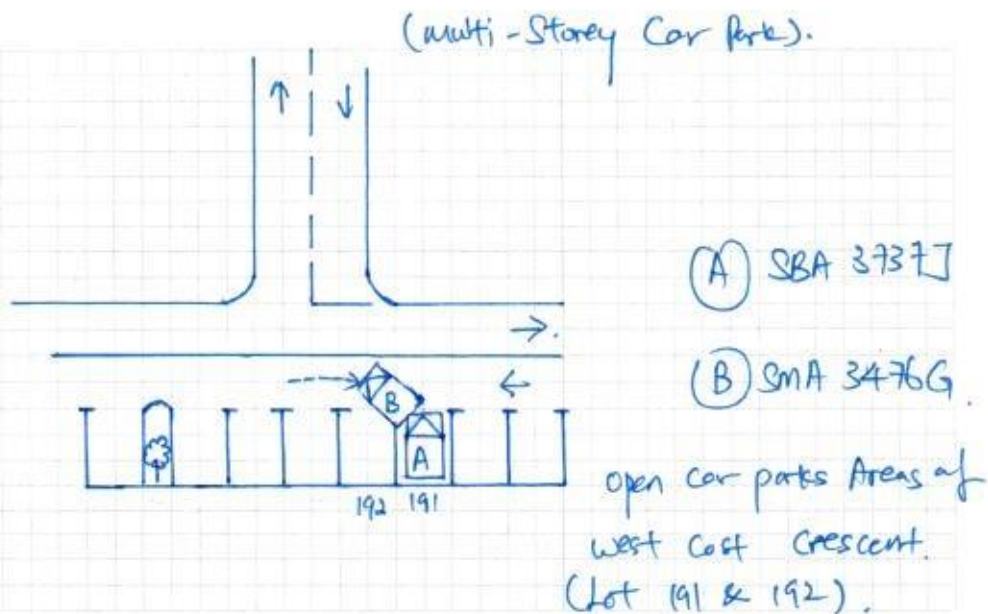 (multi-Storey Car Park).
A SBA 3737J
B SMA 3476G.
B
A
192 191
open car parks Areas of
west Cost Crescent.
(Lot 191 & 192).